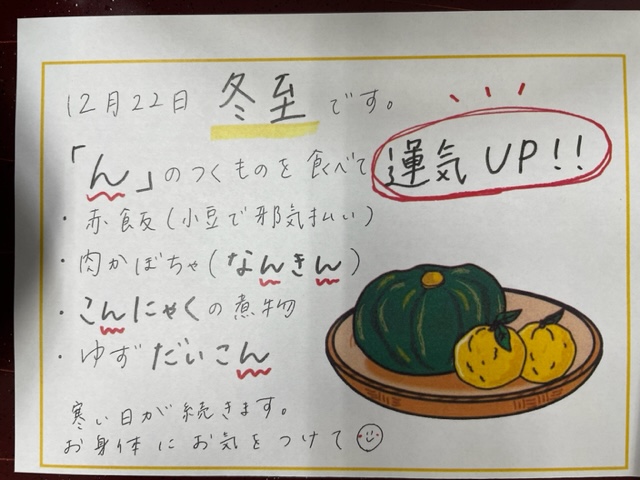 12月22日 冬至 です。
「ん」のつくものを食べて 運気UP!!
・赤飯(小豆で邪気払い)
・肉かぼちゃ(なんきん)
・こんにゃくの煮物
・ゆずだいこん
寒い日が続きます。
お身体にお気をつけて